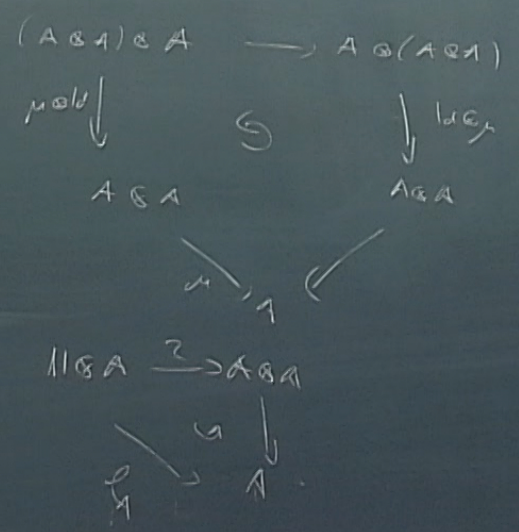 (A⊗A)⊗A → A⊗(A⊗A)
μ⊗id ↓ ↺ ↓ id⊗μ
A⊗A A⊗A
μ ↘ ↙
A
𝟙⊗A → A⊗A
↘ ↺ ↓
ℓ_A A